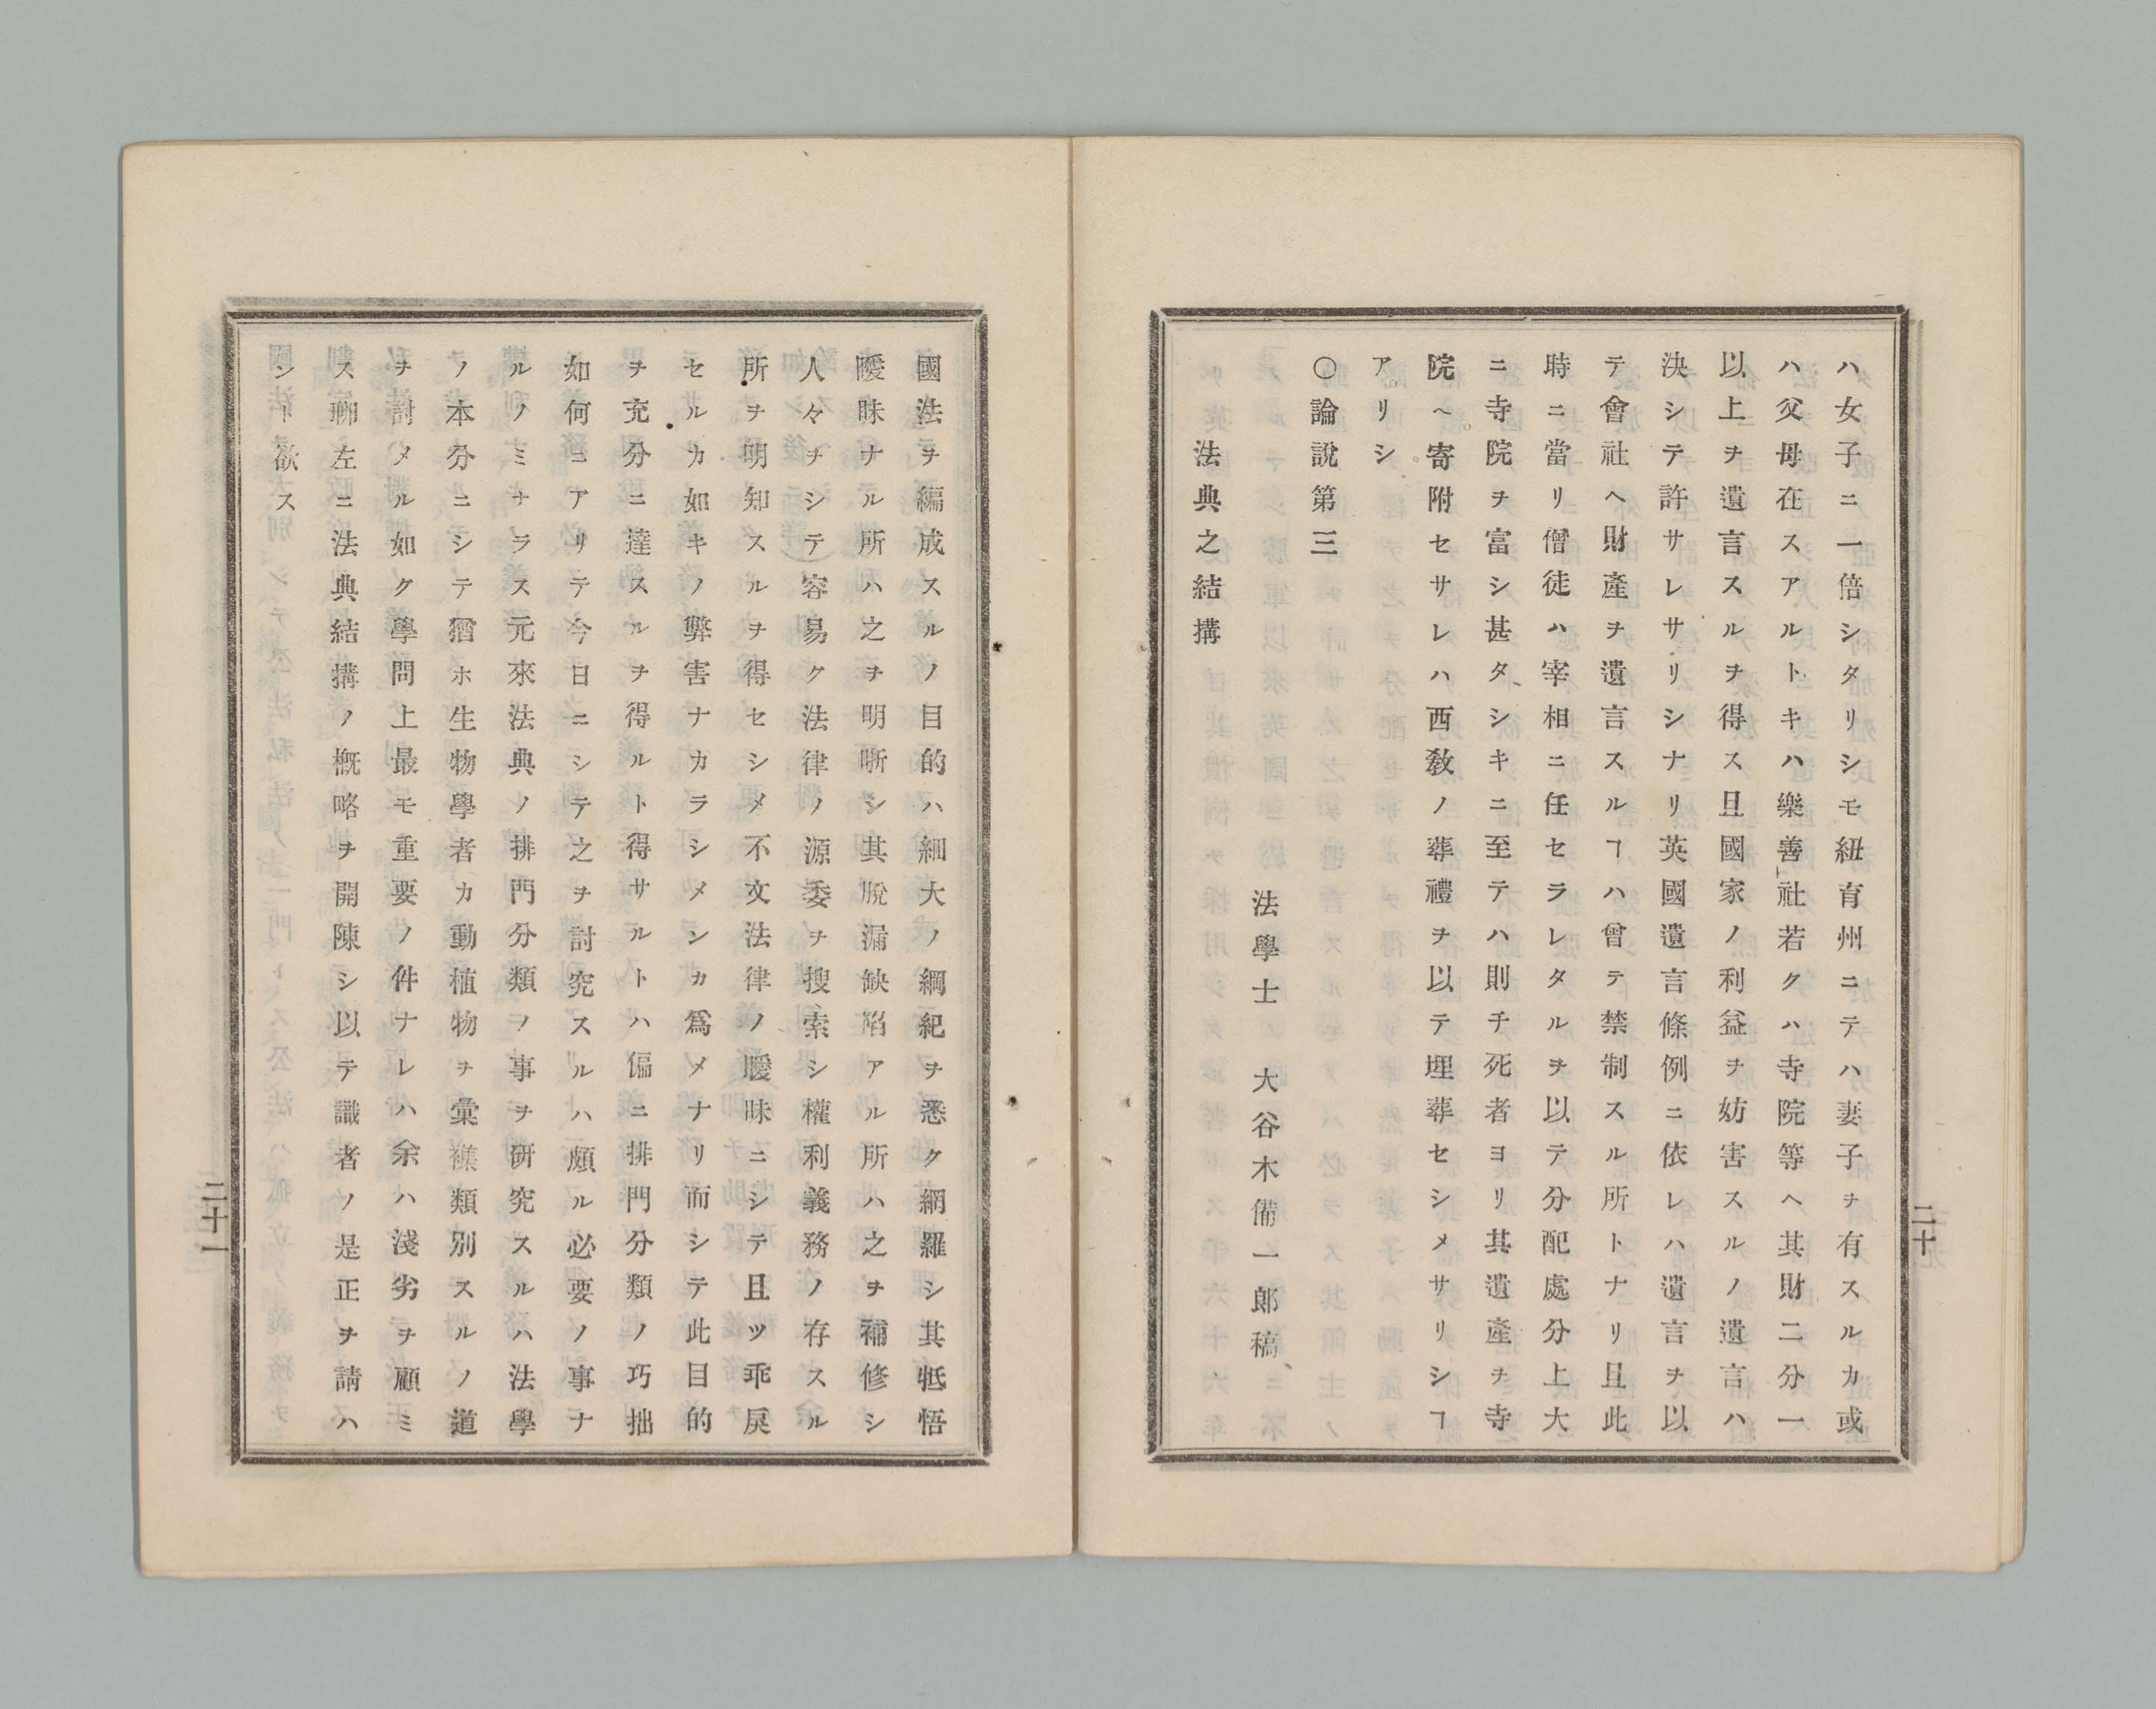 ハ女子ニ一倍シタリシモ紐育州ニテハ妻子ヲ有スルカ或
ハ父母在スアルトキハ樂善社若クハ寺院等ヘ其財二分一
以上ヲ遺言スルヲ得ス且國家ノ利益ヲ妨害スルノ遺言ハ
決シテ許サレサリシナリ英國遺言條例ニ依レハ遺言ヲ以
テ會社ヘ財產ヲ遺言スルヿハ曾テ禁制スル所トナリ且此
時ニ當リ僧徒ハ宰相ニ任セラレタルヲ以テ分配處分上大
ニ寺院ヲ富シ甚タシキニ至テハ則チ死者ヨリ其遺產ヲ寺
院ヘ寄附セサレハ西敎ノ葬禮ヲ以テ埋葬セシメサリシヿ
アリシ
〇論說第三
法典之結搆
法學士 大谷木備一郎稿
二十
國法ヲ編成スルノ目的ハ細大ノ綱紀ヲ悉ク網羅シ其牴悟
曖昧ナル所ハ之ヲ明晰シ其脫漏缺陷アル所ハ之ヲ補修シ
人々ヲシテ容易ク法律ノ源委ヲ搜索シ權利義務ノ存スル
所ヲ明知スルヲ得セシメ不文法律ノ曖昧ニシテ且ツ乖戾
セルカ如キノ弊害ナカラシメンカ爲メナリ而シテ此目的
ヲ充分ニ達スルヲ得ルト得サルトハ偏ニ排門分類ノ巧拙
如何ニアリテ今日ニシテ之ヲ討究スルハ頗ル必要ノ事ナ
ルノミナラス元來法典ノ排門分類ノ事ヲ研究スルハ法學
ノ本分ニシテ猶ホ生物學者カ動植物ヲ彙襍類別スルノ道
ヲ討メル如ク學問上最モ重要ノ件ナレハ余ハ淺劣ヲ顧ミ
ス聊左ニ法典結搆ノ槪略ヲ開陳シ以テ識者ノ是正ヲ請ハ
ント欲ス
二十一